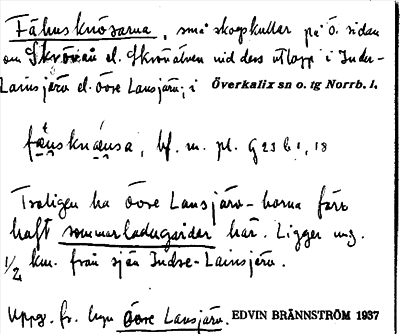 Fähusknösarna, små skogskullar på ö. sidan
om Skrövån el. Skrövälven vid dess utlopp i Indre-
Lainsjärv el. övre Lansjärv; i Överkalix sn o. tg Norrb. l.
bf. m. pl. G 23 b 1, 18
Troligen ha övre Lansjärv-borna förr
haft sommarladugårdar här. Ligger ung.
1/2 km. från sjön Indre-Lainsjärv.
Uppg. fr. byn övre Lansjärv. EDVIN BRÄNNSTRÖM 1937